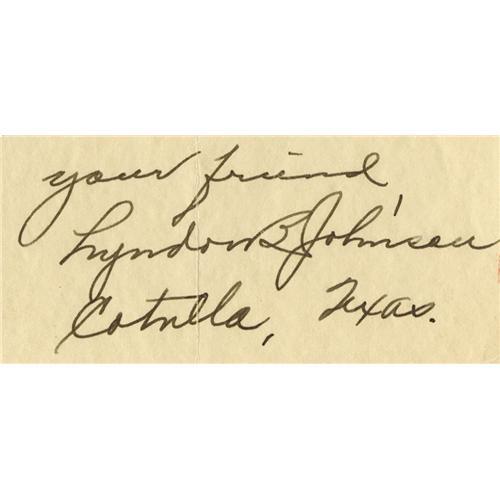 your friend,
Lyndon B Johnson
Cotulla, Texas.